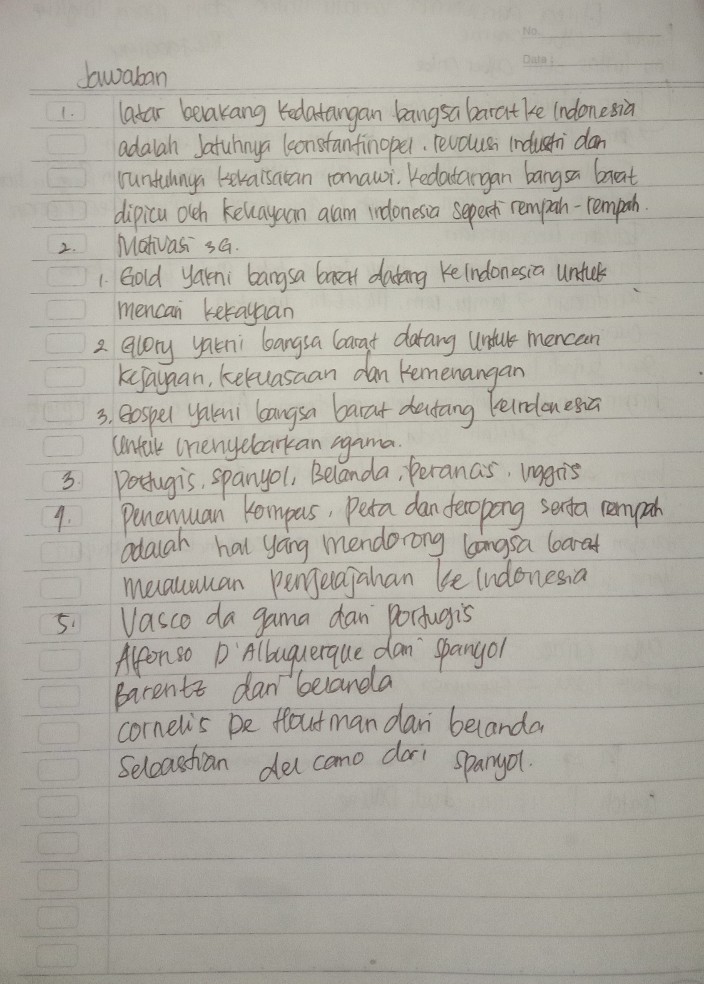 No.
Date :
Jawaban
1. latar belakang kedatangan bangsa barat ke Indonesia
adalah Jatuhnya konstantinopel. revolusi industri dan
runtuhnya kekaisaran romawi. kedatangan bangsa barat
dipicu oleh kekayaan alam indonesia seperti rempah-rempah.
2. Motivasi 3G.
1. Gold yakni bangsa barat datang ke Indonesia untuk
mencari kekayaan
2 Glory yakni bangsa barat datang untuk mencari
kejayaan, kekuasaan dan kemenangan
3. Gospel yakni bangsa barat datang keindonesia
untuk menyebarkan agama.
3. Portugis, spanyol, Belanda, perancis, inggris
4. Penemuan kompas, peta dan teropong serta rempah
adalah hal yang mendorong bangsa barat
melakukan penjelajahan ke Indonesia
5. Vasco da gama dari portugis
Alfonso D'Albuquerque dari spanyol
Barentz dari belanda
cornelis De Houtman dari belanda
Sebastian del cano dari spanyol.